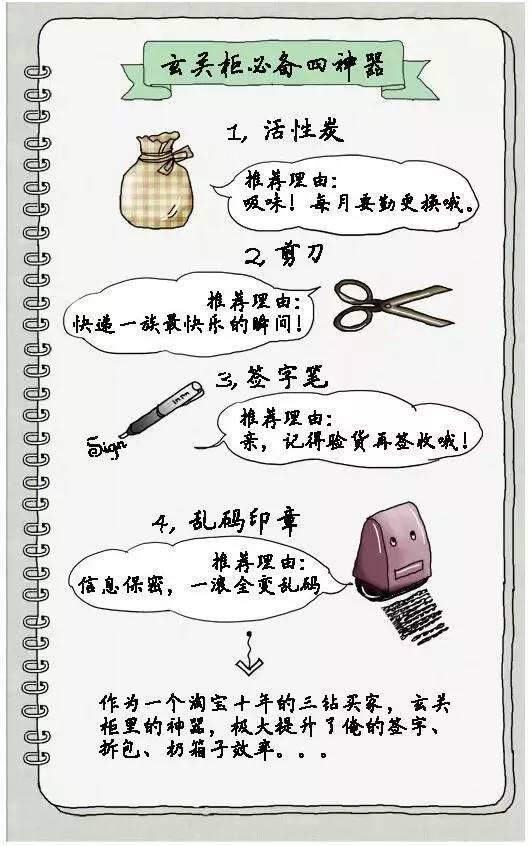 玄关柜必备四神器
1, 活性炭
推荐理由:
吸味! 每月要勤更换哦。
2, 剪刀
推荐理由:
快递一族最快乐的瞬间!
3, 签字笔
推荐理由:
亲, 记得验货再签收哦!
Sign
4, 乱码印章
推荐理由:
信息保密, 一滚全变乱码
作为一个淘宝十年的三钻买家, 玄关
柜里的神器, 极大提升了俺的签字、
拆包、扔箱子效率。。。